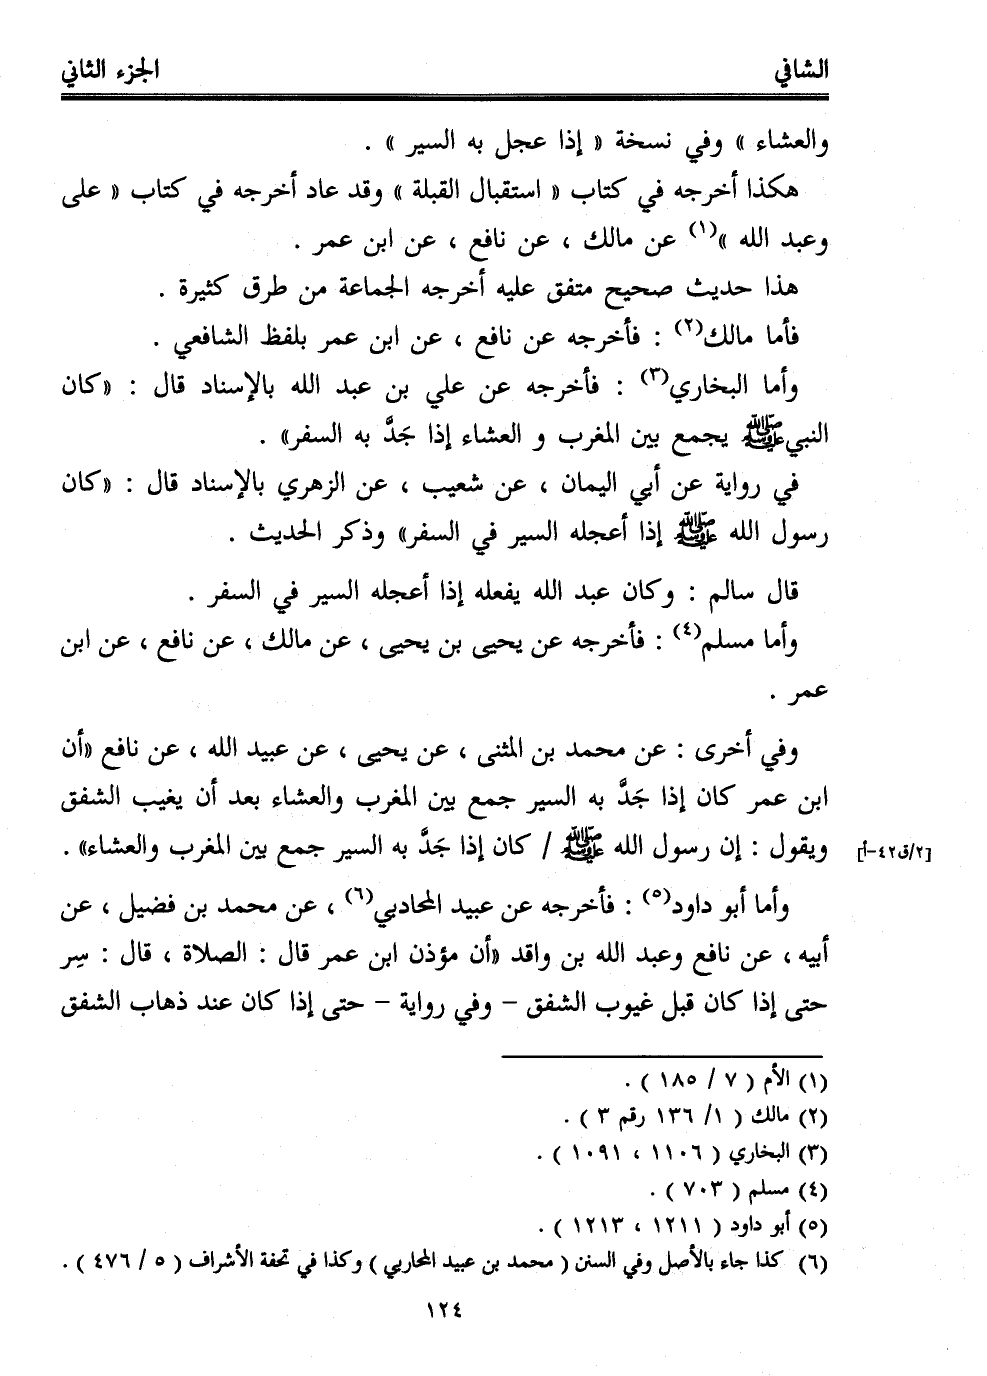 الشافي الجزء الثاني
والعشاء » وفي نسخة « إذا عجل به السير » .
هكذا أخرجه في كتاب « استقبال القبلة » وقد عاد أخرجه في كتاب « على
وعبد الله »(١) عن مالك ، عن نافع ، عن ابن عمر .
هذا حديث صحيح متفق عليه أخرجه الجماعة من طرق كثيرة .
فأما مالك(٢) : فأخرجه عن نافع ، عن ابن عمر بلفظ الشافعي .
وأما البخاري(٣) : فأخرجه عن علي بن عبد الله بالإسناد قال : «كان
النبي ﷺ يجمع بين المغرب و العشاء إذا جَدَّ به السفر» .
في رواية عن أبي اليمان ، عن شعيب ، عن الزهري بالإسناد قال : «كان
رسول الله ﷺ إذا أعجله السير في السفر» وذكر الحديث .
قال سالم : وكان عبد الله يفعله إذا أعجله السير في السفر .
وأما مسلم(٤) : فأخرجه عن يحيى بن يحيى ، عن مالك ، عن نافع ، عن ابن
عمر .
وفي أخرى : عن محمد بن المثنى ، عن يحيى ، عن عبيد الله ، عن نافع «أن
ابن عمر كان إذا جَدَّ به السير جمع بين المغرب والعشاء بعد أن يغيب الشفق
ويقول : إن رسول الله ﷺ / كان إذا جَدَّ به السير جمع بين المغرب والعشاء» . [٢/ق٤٢-أ]
وأما أبو داود(٥) : فأخرجه عن عبيد المحادبي(٦) ، عن محمد بن فضيل ، عن
أبيه ، عن نافع وعبد الله بن واقد «أن مؤذن ابن عمر قال : الصلاة ، قال : سِر
حتى إذا كان قبل غيوب الشفق - وفي رواية - حتى إذا كان عند ذهاب الشفق
(١) الأم ( ٧ / ١٨٥ ) .
(٢) مالك ( ١/ ١٣٦ رقم ٣ ) .
(٣) البخاري ( ١١٠٦ ، ١٠٩١ ) .
(٤) مسلم ( ٧٠٣ ) .
(٥) أبو داود ( ١٢١١ ، ١٢١٣ ) .
(٦) كذا جاء بالأصل وفي السنن ( محمد بن عبيد المحاربي ) وكذا في تحفة الأشراف ( ٥ / ٤٧٦ ) .
١٢٤